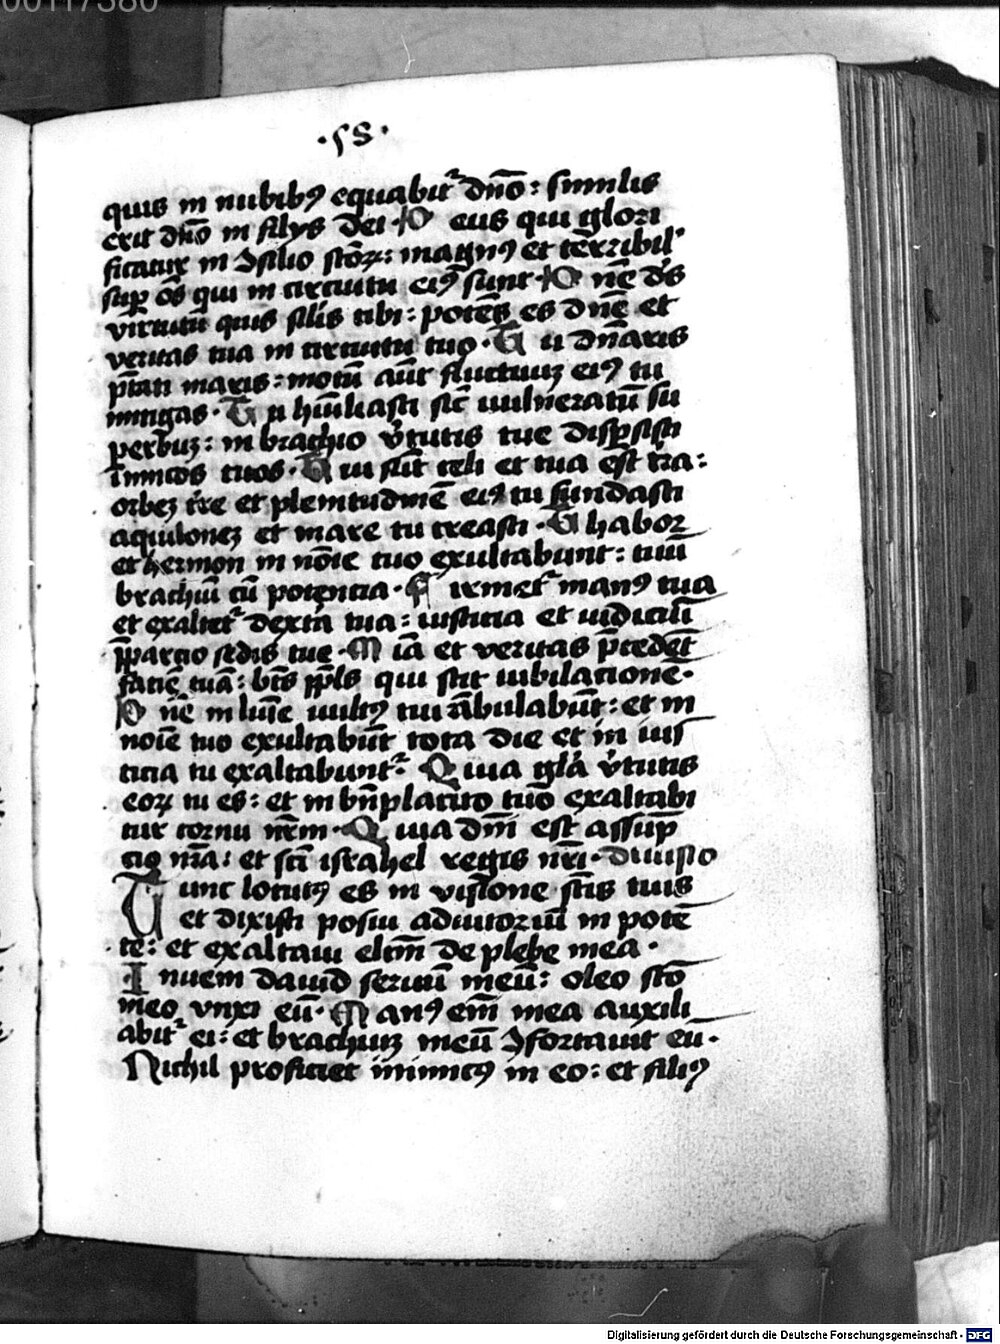 00117380
·58·
quis in nubibꝰ equabitᷣ dn̄o: similis
erit dn̄o in filijs dei D eus qui glori
ficatur in ꝯsilio sc̄oꝝ: magnꝰ et terribil᾽
suꝑ oēs qui in circuitu eiꝰ sunt· D n̄e dẽs
virtutū quis sil̄is tibi: potēs es dn̄e et
veritas tua in circuitu tuo· T u dn̄aris
ptāti maris: motū aūt fluctuuꝫ eiꝰ tu
mitigas· T u hūiliasti sic̄ uulneratū su
perbuꝫ: in brachio v̓tutis tue disꝑsisti
īimicos tuos· T ui sūt celi et tua est tra:
orbeꝫ tr̄e et plenitudinē eiꝰ tu fundasti
aquiloneꝫ et mare tu creasti· T habor
et hermon in noīe tuo exultabunt: tuū
brachiū cū potencia· F irmetᷣ manꝰ tua
et exaltetᷣ dexta tua: iusticia et iudiciū
p̄paracio sedis tue· M ia et veritas p̄cedēt
faciē tuā: bt̄s ppl̄s qui scit iubilacionē·
D n̄e in lumīe uultꝰ tui ābulabūt: et in
noīe tuo exultabūt tota die et in ius
ticia tu exaltabuntᷣ Q uia glā v̓tutis
eoꝝ tu es: et in bn̄placito tuo exaltabi
tur cornu nr̄m· Q uia dn̄i est assūp
cio nr̄a: et sc̄i israhel regis nr̄i· diuisio
T unc locutꝰ es in visione sc̄is tuis
et dixisti posui adiutoriū in potē
te: et exaltaui elc̄m de plebe mea·
I nueni dauid seruū meū: oleo sc̄o
meo vnxi eū· M anꝰ em̄ mea auxili
abitᷣ ei: et brachiuꝫ meū ꝯfortauit eū·
Nichil proficiet inimicꝰ in eo: et filiꝰ
Digitalisierung gefördert durch die Deutsche Forschungsgemeinschaft - DFG